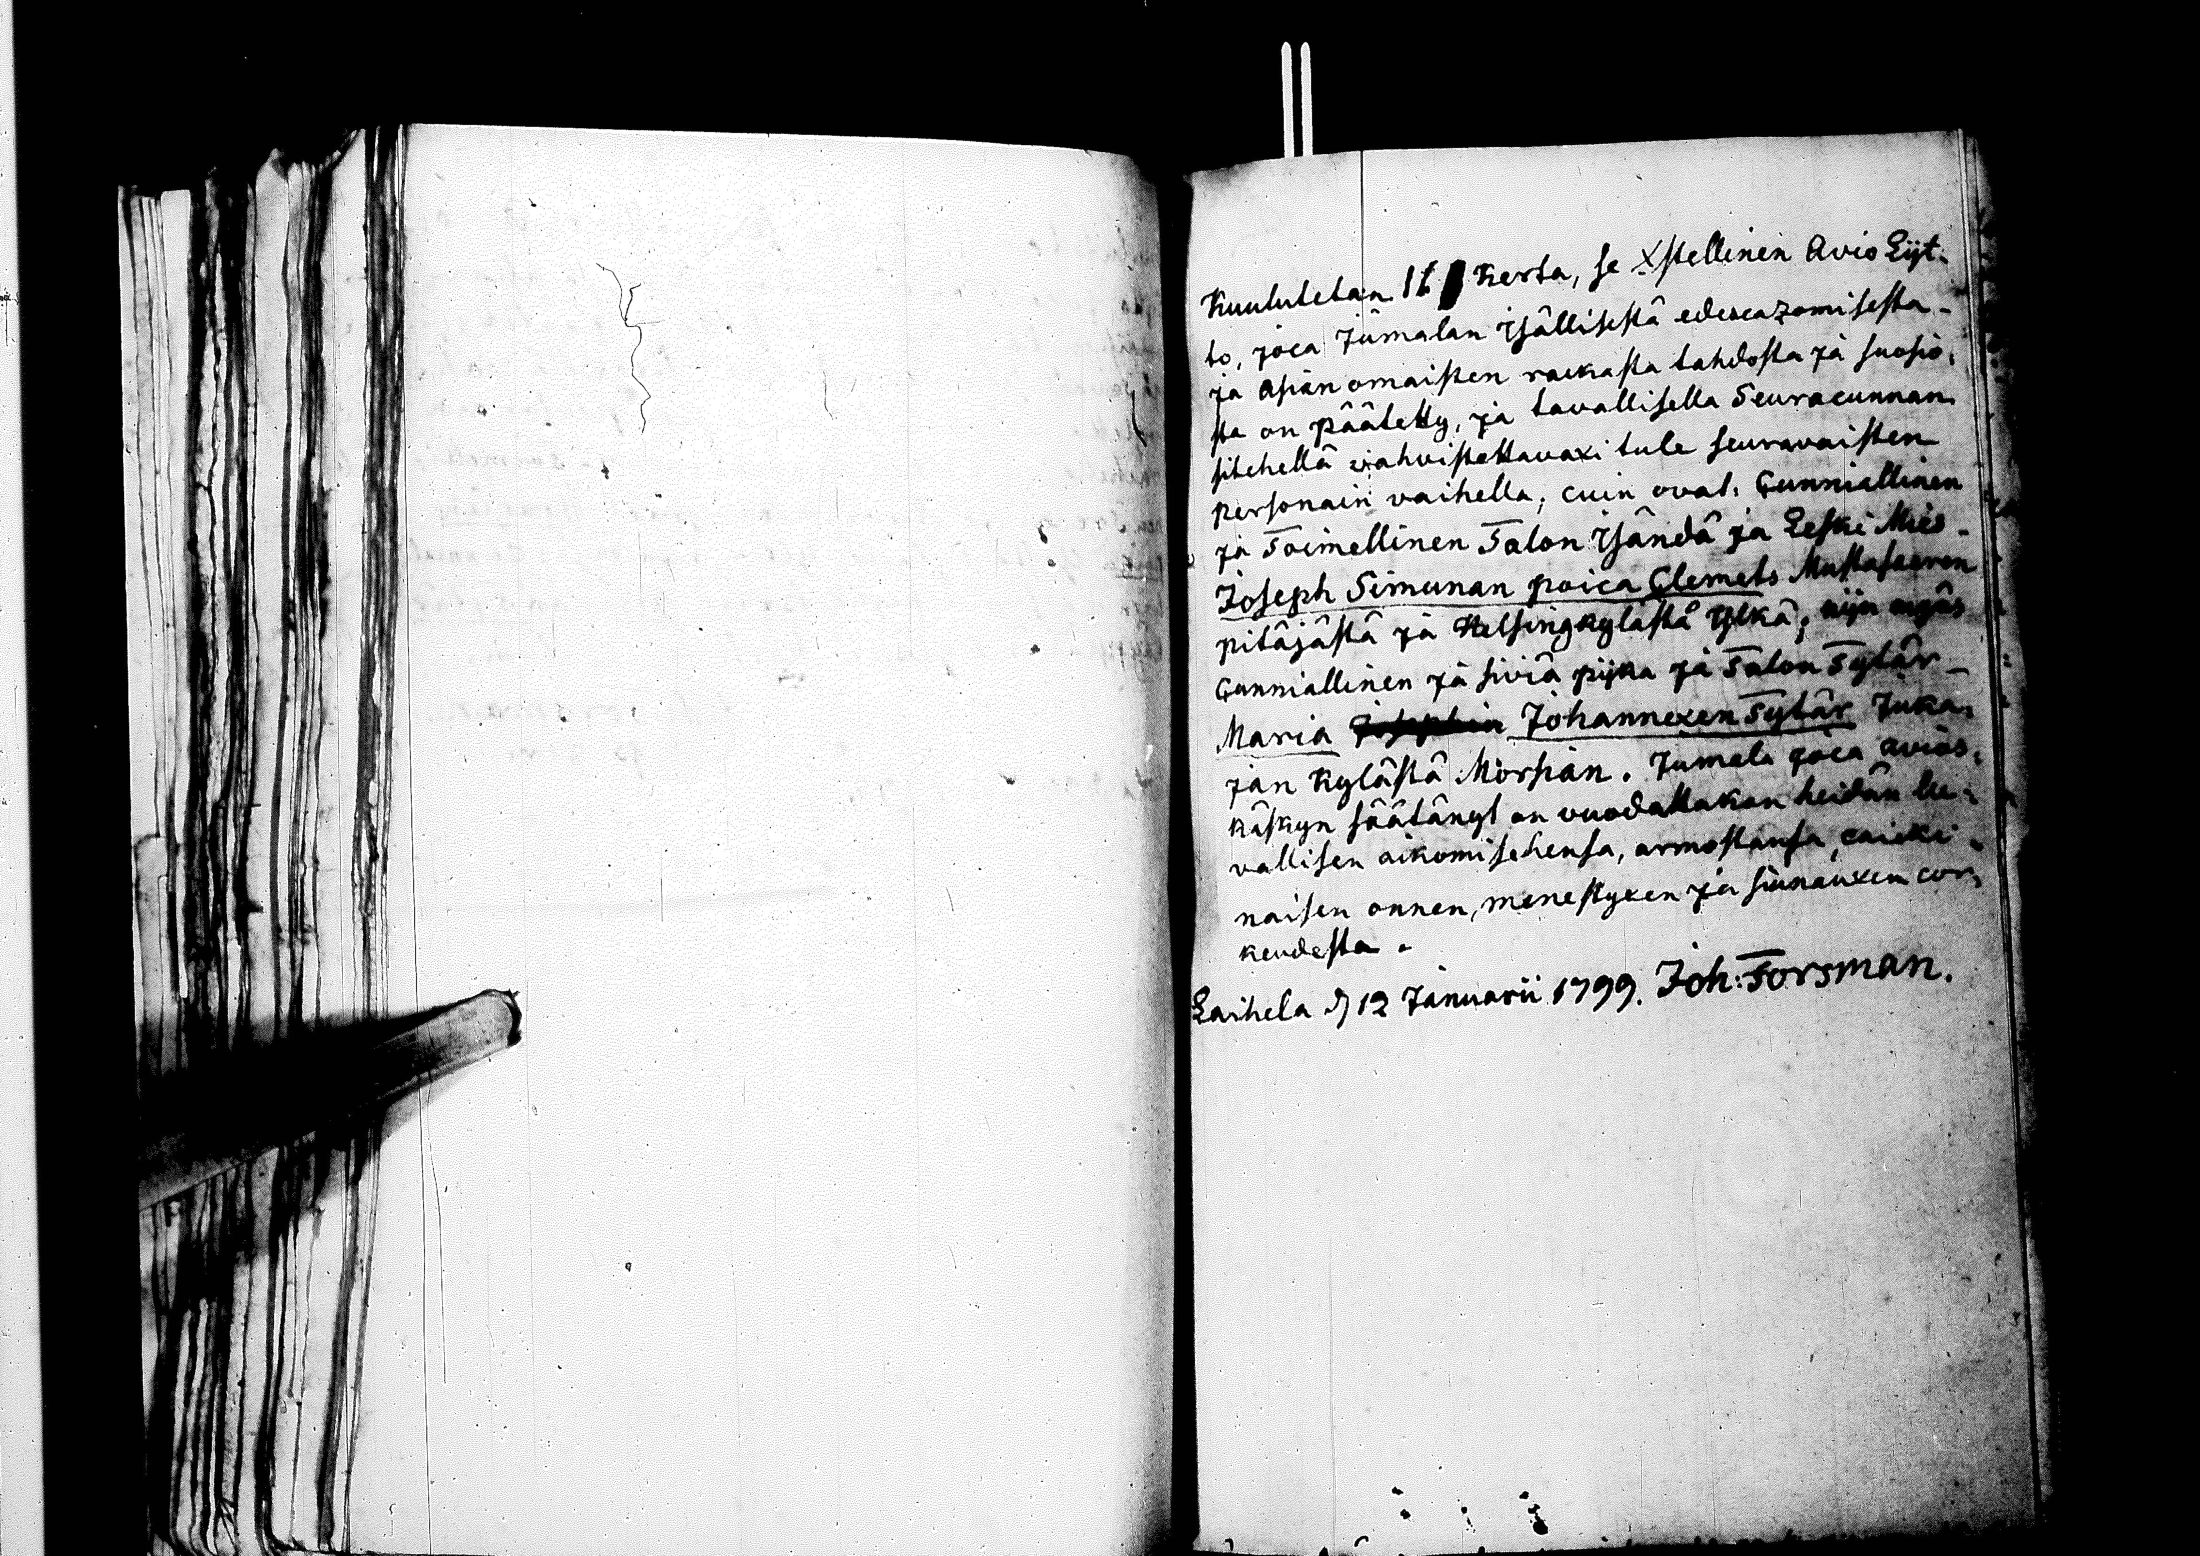 Kuulutetan 1t Kerta, se Xstellinen Avio Lijt-
to, joca Jumalan Isällisestä edescazomisesta-
ja Asian omaisten rackasta tahdosta ja suosio-
sta on päätetty, ja tavallisella Seuracunnan
sitehellä vahvistettavaxi tule seuravaisten
personain vaihella, cuin ovat: Cunniallinen
ja Toimellinen Talon Isändä ja Leski Mies-
Joseph Simunan poica Clemets Mustasaaren
pitäjästä ja Helsingkylästä Ylkä, nijn myös
Cunniallinen ja siviä pijka ja Talon Tytär-
Maria Johannexen Tytär Juka-
jan Kylästä Morsian. Jumala joca avios-
käskyn säätänyt on vuodattakon heidän lu-
vallisen aikomisehensa, armostansa, caicki-
naisen onnen, menestyxen ja siunauxen cor-
keudesta.
Laihela d 12 Januarii 1799. Joh: Forsman.